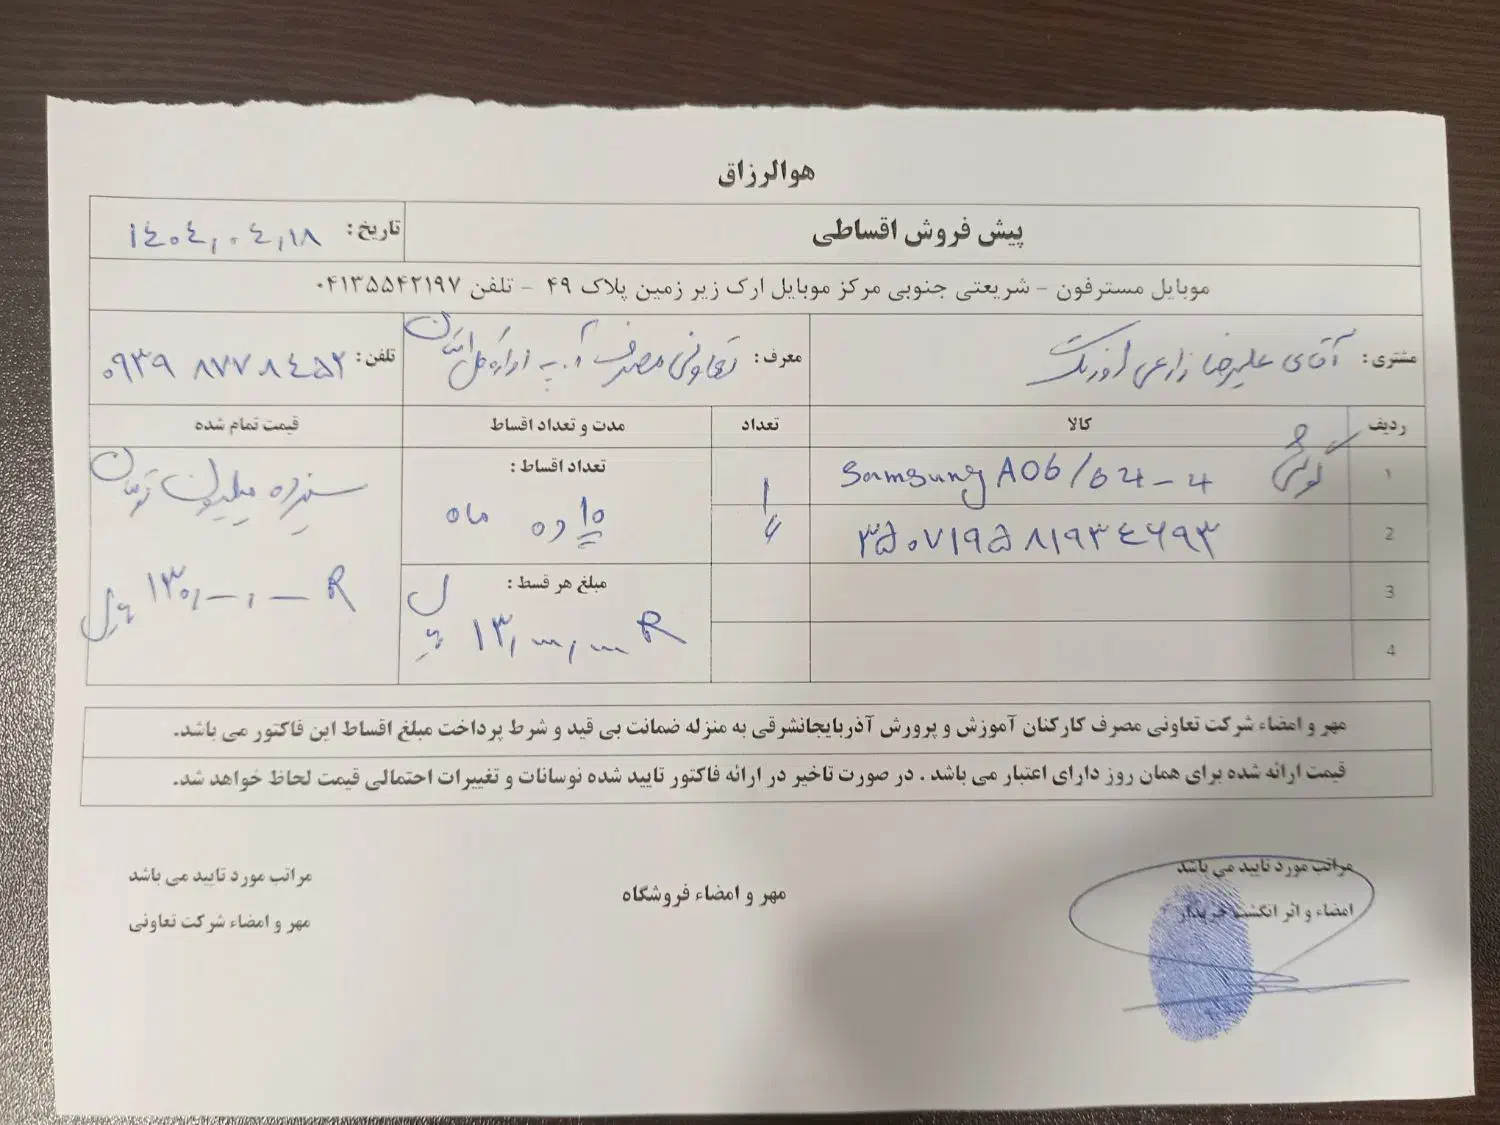 هوالرزاق
پیش فروش اقساطی
تاریخ: ۱۴۰۴,۰۴,۱۸
موبایل مسترفون - شریعتی جنوبی مرکز موبایل ارک زیر زمین پلاک ۴۹ - تلفن ۰۴۱۳۵۵۴۲۱۹۷
مشتری: آقای علیرضا زارعی
معرف: تعاونی مصرف آ.پ اداره کل استان
تلفن: ۰۹۳۹ ۸۷۷۸۴۵۲
ردیف کالا تعداد مدت و تعداد اقساط قیمت تمام شده
۱ گوشی Samsung A06/64-4 ۱
2 ۳۵۰۷۱۹۵۸۱۹۳۴۶۹۳
3
4
تعداد اقساط:
۱۰ ده ماه
مبلغ هر قسط:
۱۳,۰۰۰,۰۰۰ R ریال
سیزده میلیون تومان
۱۳۰,۰۰۰,۰۰۰ R ریال
مهر و امضاء شرکت تعاونی مصرف کارکنان آموزش و پرورش آذربایجانشرقی به منزله ضمانت بی قید و شرط پرداخت مبلغ اقساط این فاکتور می باشد.
قیمت ارائه شده برای همان روز دارای اعتبار می باشد . در صورت تاخیر در ارائه فاکتور تایید شده نوسانات و تغییرات احتمالی قیمت لحاظ خواهد شد.
مراتب مورد تایید می باشد
امضاء و اثر انگشت خریدار
مهر و امضاء فروشگاه
مراتب مورد تایید می باشد
مهر و امضاء شرکت تعاونی